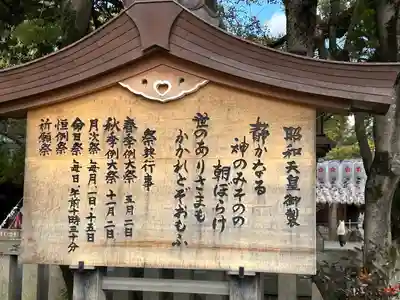 昭和天皇御製
静かなる
神のみそのの
朝ぼらけ
世のありさまも
かかれとぞおもふ
祭典行事
春季例大祭 五月二日
秋季例大祭 十一月二日
月次祭 毎月一日・十五日
命日祭
恒例祭 毎日 午前十時三十分
祈願祭